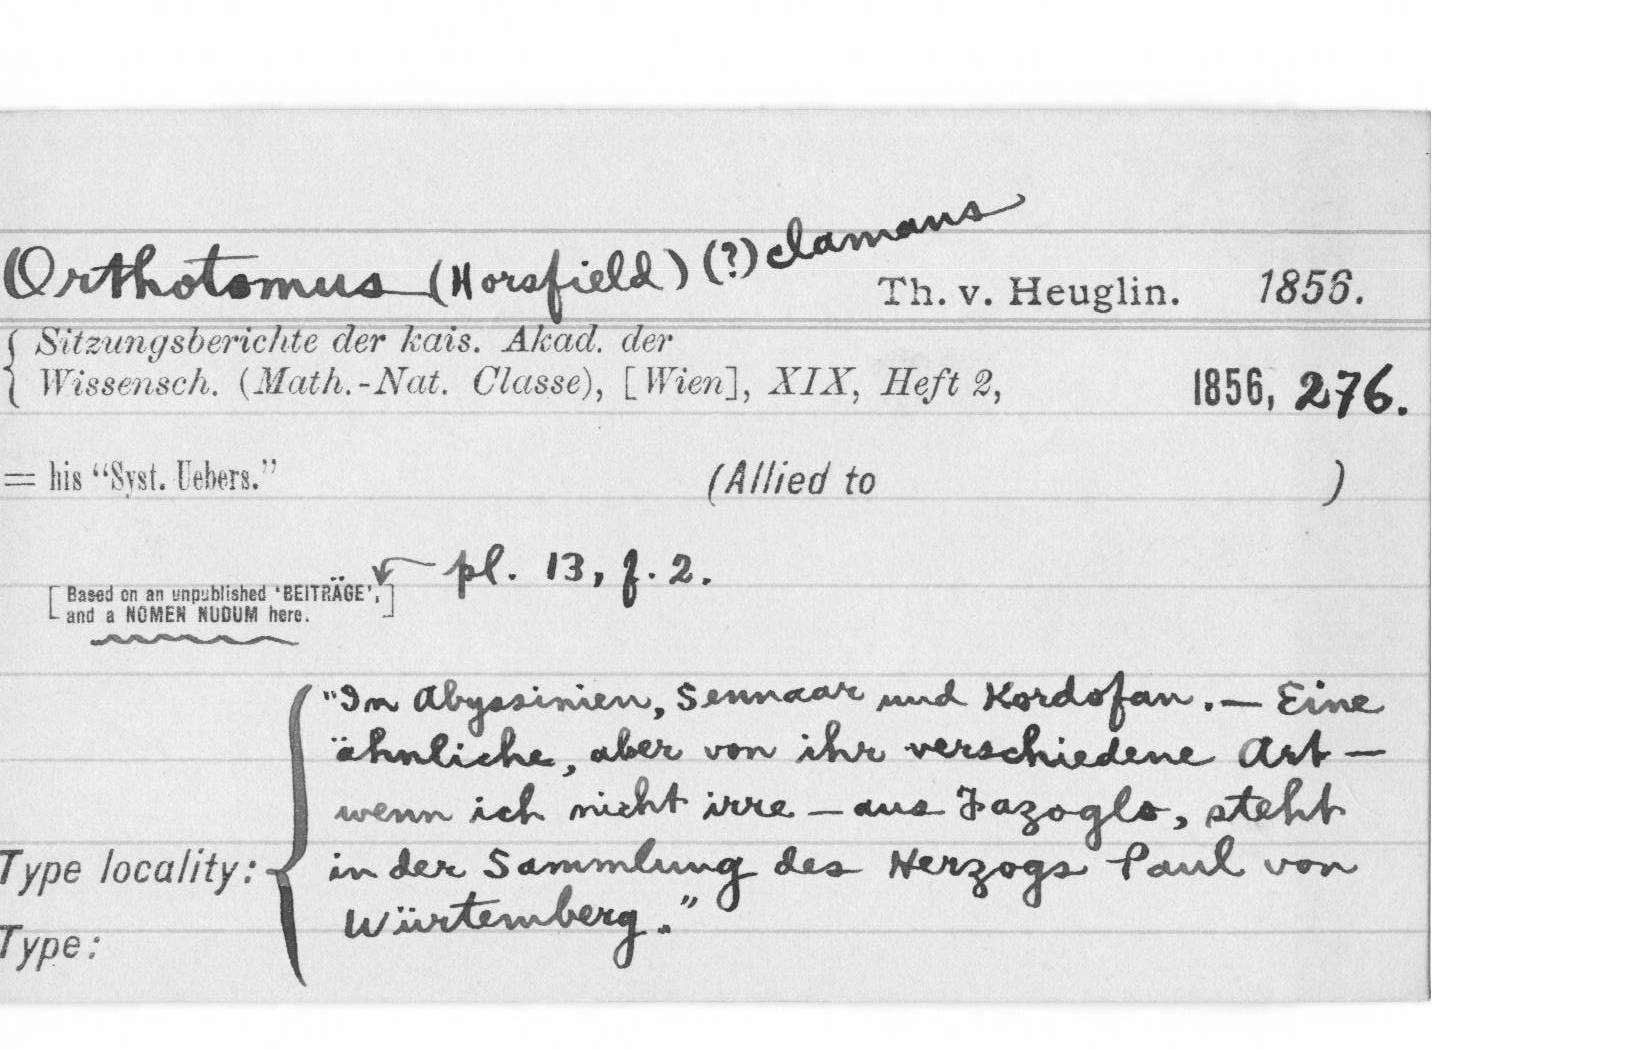 Orthotomus (Horsfield) (?) clamans
Th. v. Heuglin. 1856.
Sitzungsberichte der kais. Akad. der
Wissensch. (Math.-Nat. Classe), [Wien], XIX, Heft 2, 1856, 276.
= his “Syst. Uebers.” (Allied to )
pl. 13, f. 2.
[Based on an unpublished ‘BEITRÄGE’,
and a NOMEN NUDUM here.]
"In Abyssinien, Sennaar und Kordofan. — Eine
ähnliche, aber von ihr verschiedene Art —
wenn ich nicht irre — aus Fazoglo, steht
Type locality: in der Sammlung des Herzogs Paul von
Würtemberg."
Type: